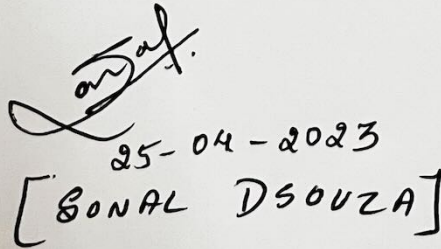 25-04-2023
[SONAL DSOUZA]